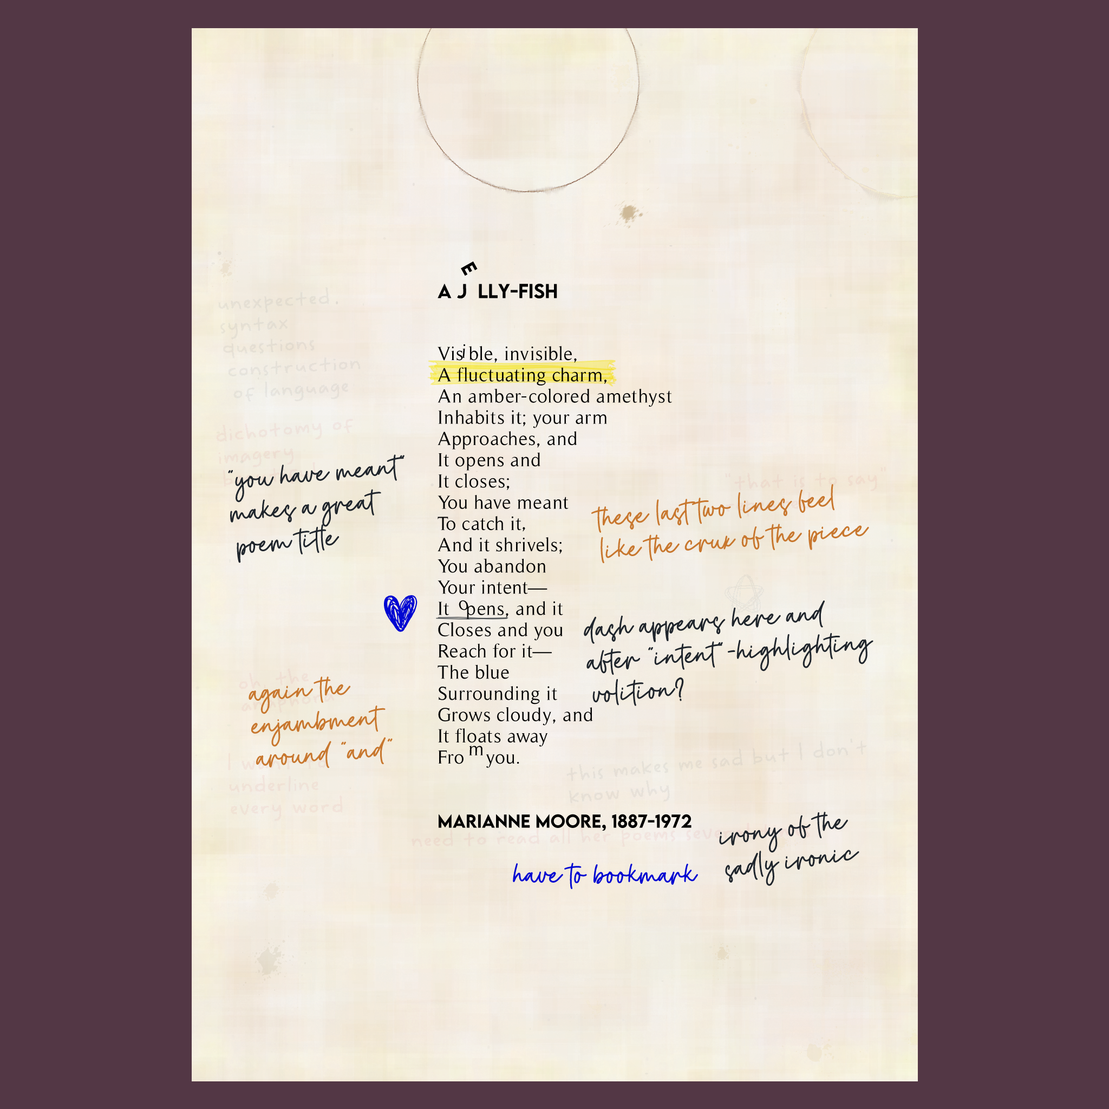 A JELLY-FISH
Visible, invisible,
A fluctuating charm,
An amber-colored amethyst
Inhabits it; your arm
Approaches, and
It opens and
It closes;
You have meant
To catch it,
And it shrivels;
You abandon
Your intent—
It opens, and it
Closes and you
Reach for it—
The blue
Surrounding it
Grows cloudy, and
It floats away
From you.
MARIANNE MOORE, 1887-1972
unexpected.
syntax
questions
construction
of language
dichotomy of
imagery
"you have meant"
makes a great
poem title
"that is to say"
these last two lines feel
like the crux of the piece
dash appears here and
after "intent"-highlighting
volition?
again the
enjambment
around "and"
underline
every word
this makes me sad but I don't
know why
need to read all her poems
irony of the
sadly ironic
have to bookmark